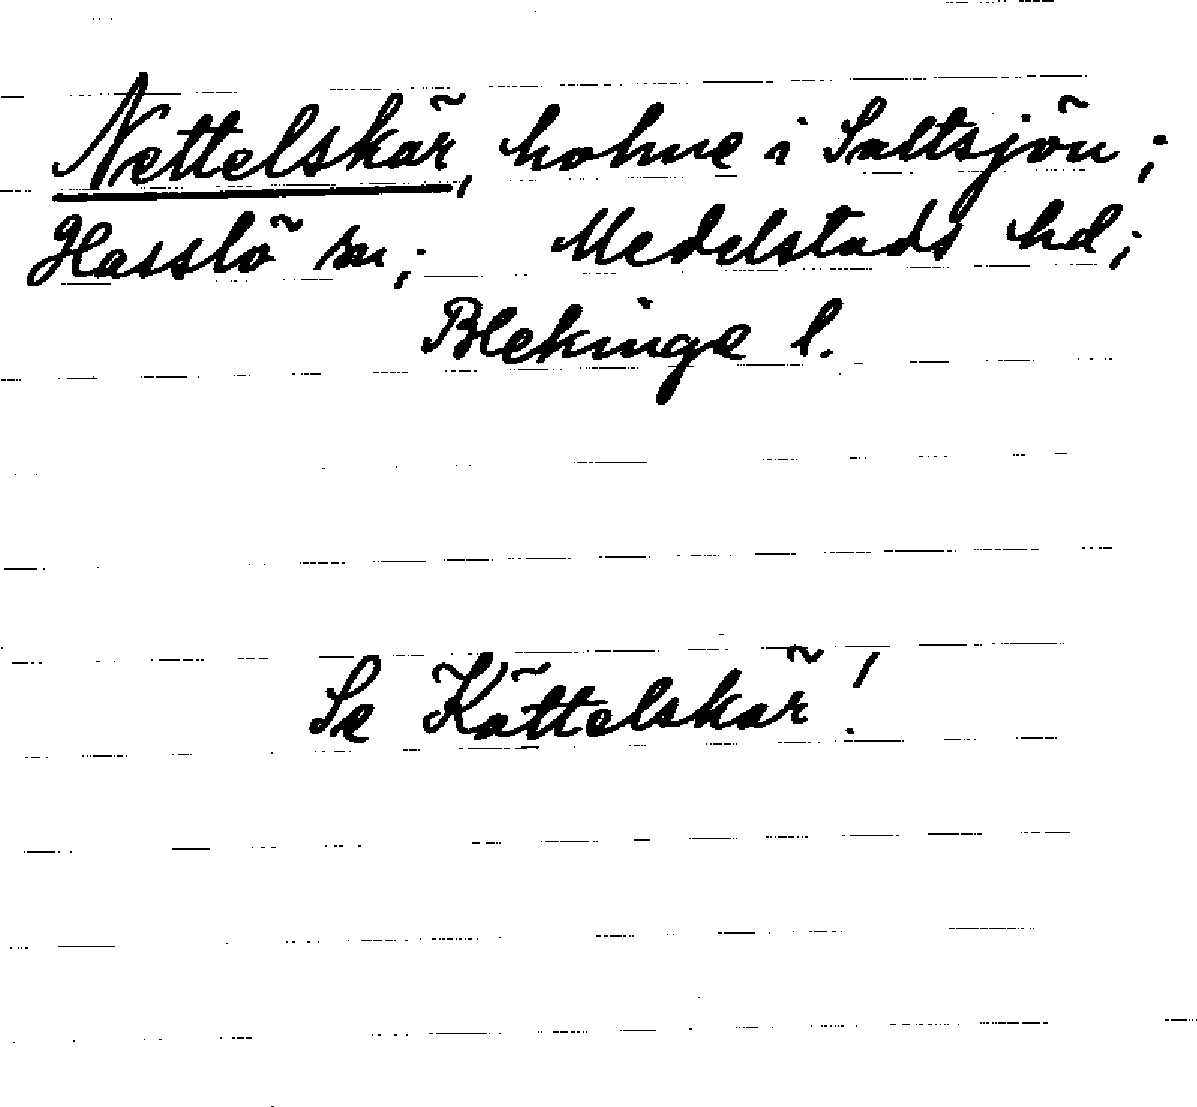 Nettelskär, holme i Saltsjön;
Hasslö sn; Medelstads hd;
Blekinge l.
Se Kättelskär!